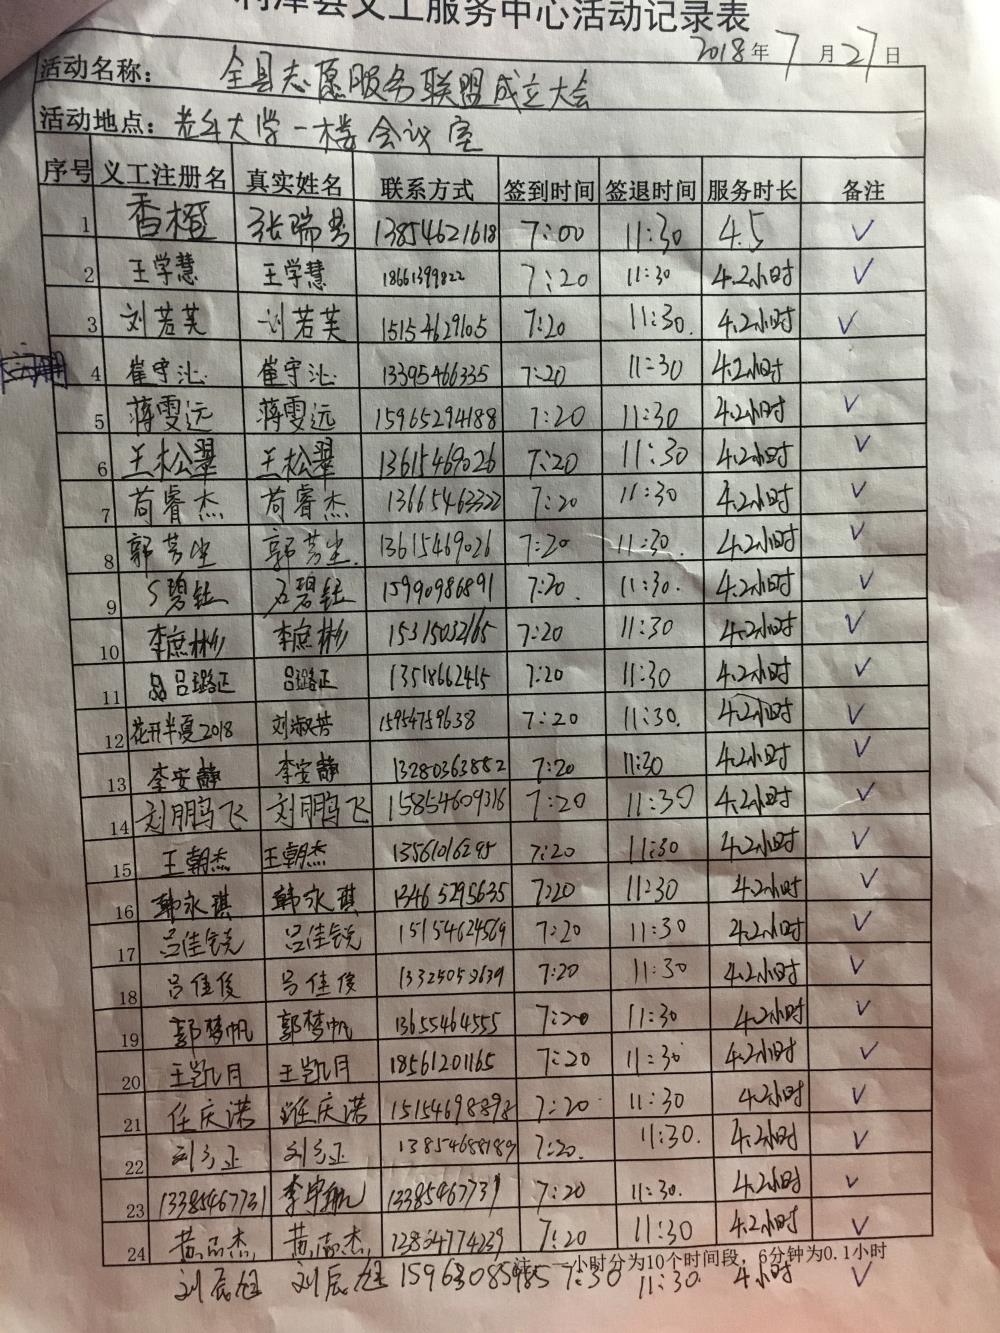 利津县义工服务中心活动记录表
2018年7月27日
活动名称： 全县志愿服务联盟成立大会
活动地点：老年大学一楼会议室
序号 义工注册名 真实姓名 联系方式 签到时间 签退时间 服务时长 备注
1 香橙 张瑞芳 13854621618 7:00 11:30 4.5 ✓
2 王学慧 王学慧 18661399822 7:20 11:30 4.2小时 ✓
3 刘若芙 刘若芙 15154629105 7:20 11:30. 4.2小时 ✓
4 崔守沁 崔守沁 13395466335 7:20 11:30 4.2小时
5 蒋雯远 蒋雯远 15965294188 7:20 11:30 4.2小时 ✓
6 王松翠 王松翠 13615469026 7:20 11:30 4.2小时 ✓
7 苟睿杰 苟睿杰 13665463322 7:20 11:30 4.2小时 ✓
8 郭芳尘 郭芳尘. 13615469026 7:20 11:30. 4.2小时 ✓
9 碧钰 石碧钰 15990986891 7:20. 11:30. 4.2小时 ✓
10 李庶彬 李庶彬 15315032165 7:20 11:30 4.2小时 ✓
11 吕璐正 吕璐正 13518662415 7:20 11:30 4.2小时 ✓
12 花开半夏2018 刘淑芳 15954759638 7:20 11:30. 4.2小时 ✓
13 李安静 李安静 13280363882 7:20 11:30 4.2小时 ✓
14 刘鹏飞 刘鹏飞 15854609316 7:20 11:30 4.2小时 ✓
15 王朝杰 王朝杰 13561016295 7:20 11:30 4.2小时 ✓
16 韩永琪 韩永琪 13465295635 7:20 11:30 4.2小时 ✓
17 吕佳锐 吕佳锐 15154624569 7:20 11:30 4.2小时 ✓
18 吕佳俊 吕佳俊 13325053639 7:20 11:30 4.2小时 ✓
19 郭梦帆 郭梦帆 13655464555 7:20 11:30 4.2小时 ✓
20 王凯月 王凯月 18561201165 7:20 11:30 4.2小时 ✓
21 任庆诺 任庆诺 15154698898 7:20 11:30 4.2小时 ✓
22 13854688189 7:20. 11:30. 4.2小时 ✓
23 13385467731 李宇航 13385467731 7:20 11:30. 4.2小时 ✓
24 黄志杰 黄志杰 12864774239 7:20 11:30 4.2小时 ✓
注：一小时分为10个时间段，6分钟为0.1小时
刘辰旭 刘辰旭 15963085985 7:30 11:30. 4小时 ✓